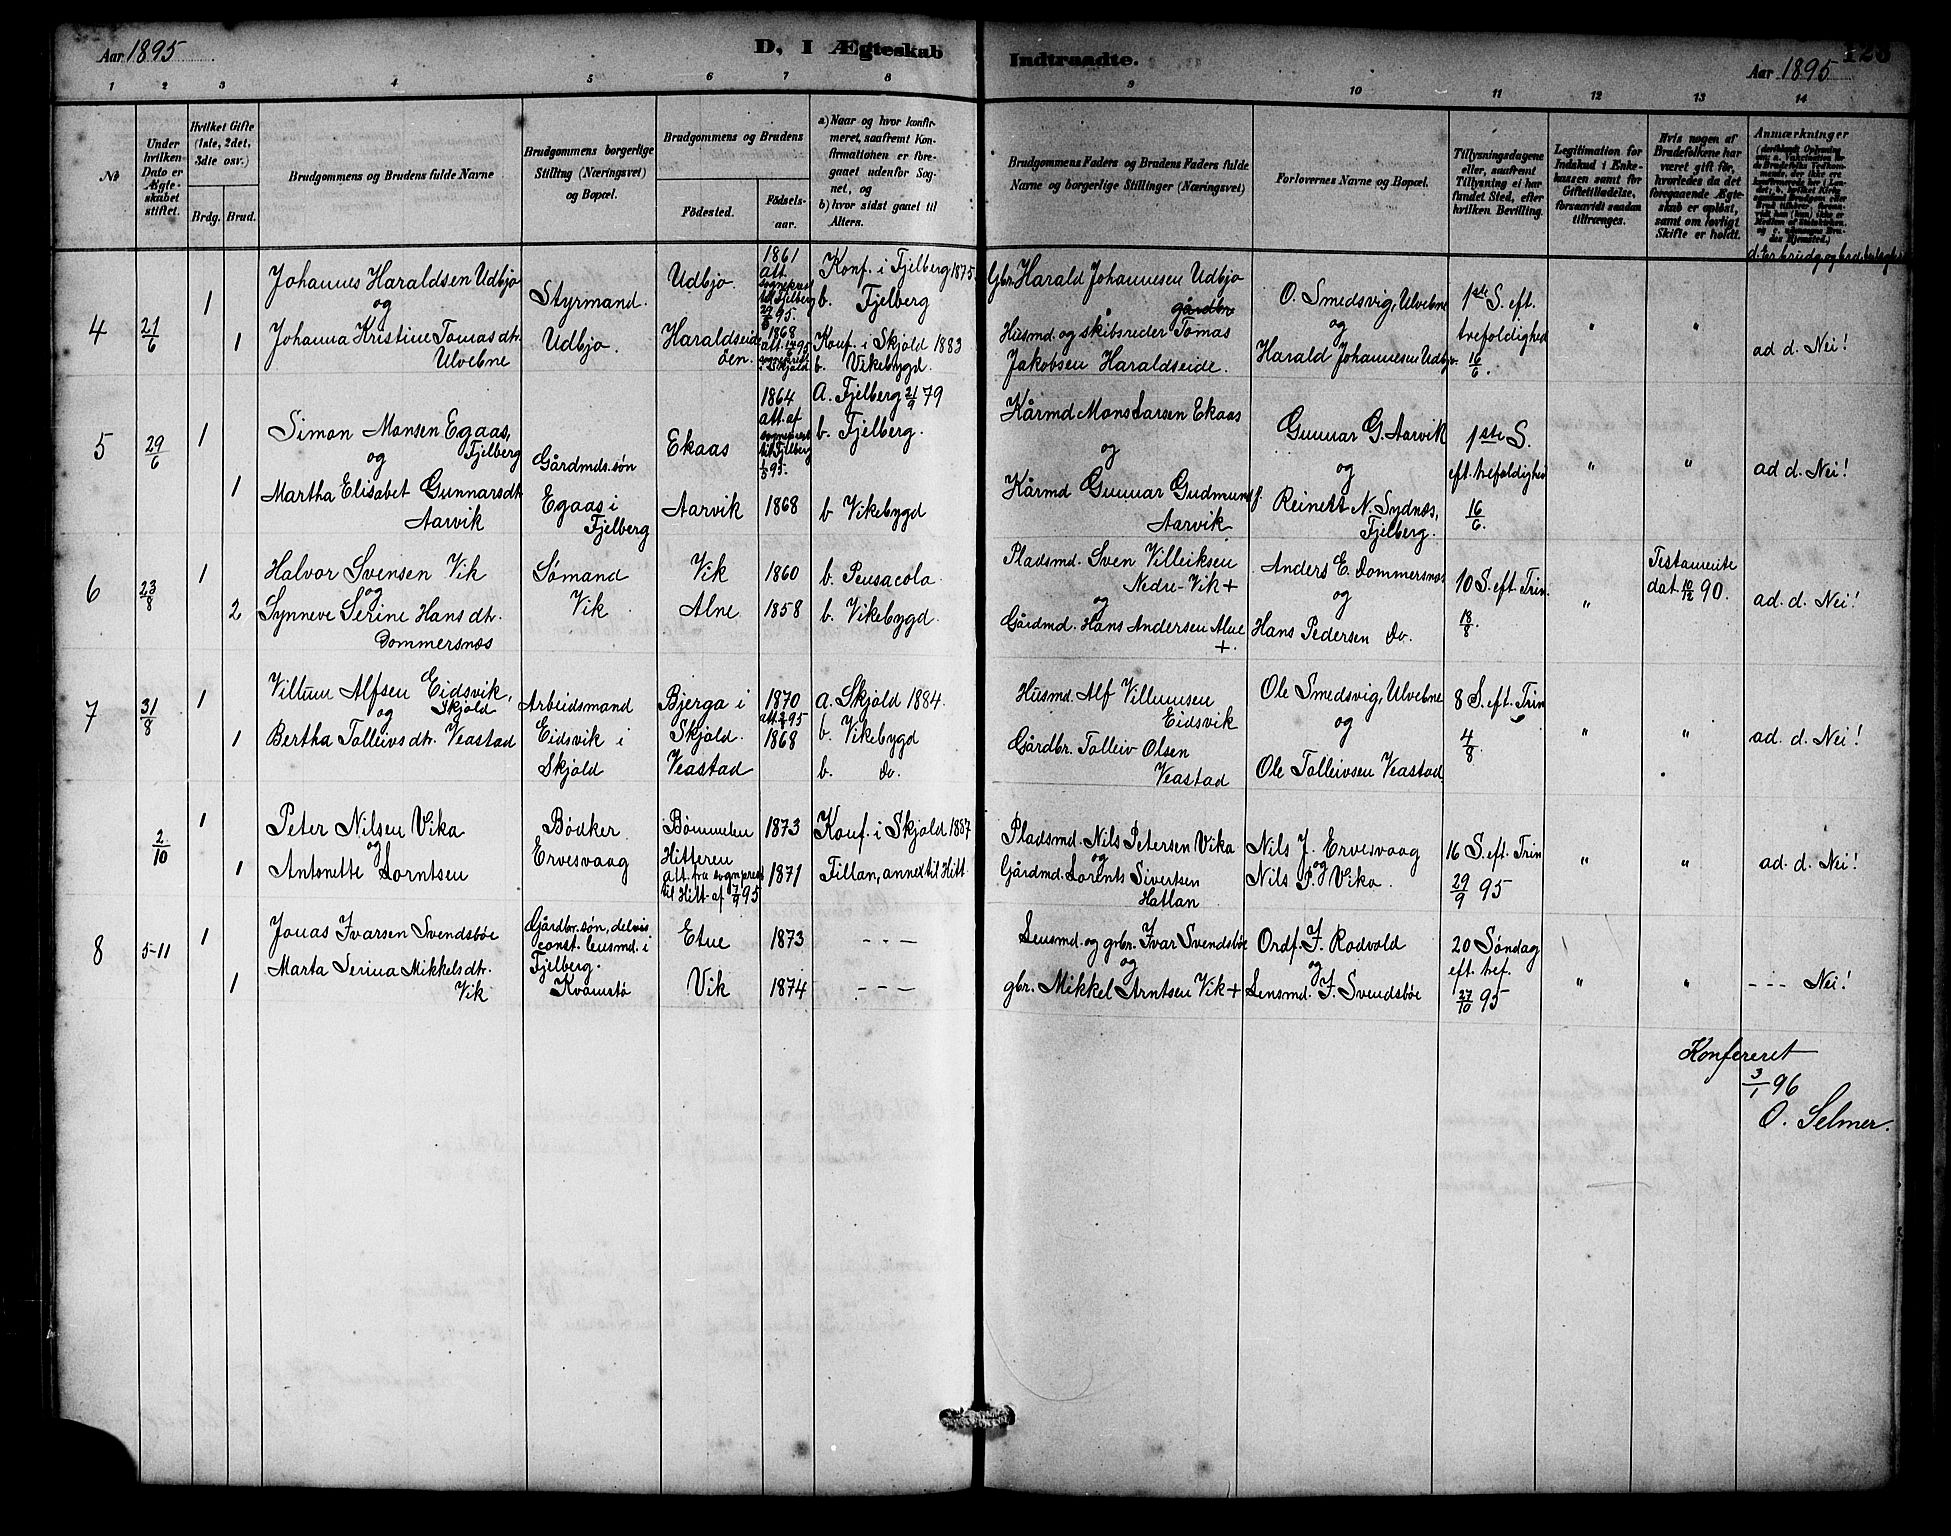 Aar 1895
D, I Ægteskab
Indtraadte.
Aar 1895
123
1 2 3 4 5 6 7 8 9 10 11 12 13 14
No
Under hvilken Dato er Ægteskabet stiftet.
Hvilket Gifte (1ste, 2det, 3die osv.)
Brdg. Brud.
Brudgommens og Brudens fulde Navne
Brudgommens borgerlige Stilling (Næringsvei) og Bopæl.
Brudgommens og Brudens
Fødested. Fødselsaar.
a) Naar og hvor konfirmeret, saafremt Konfirmationen er foregaaet udenfor Sognet, og
b) hvor sidst gaaet til Alters.
Brudgommens Faders og Brudens Faders fulde Navne og borgerlige Stillinger (Næringsvei)
Forlovernes Navne og Bopæl.
Tillysningsdagene eller, saafremt Tillysning ei har fundet Sted, efter hvilken Bevilling.
Legitimation for Indskud i Enkekassen samt for Giftetilladelse, forsaavidt saadan tiltrænges.
Hvis nogen af Brudefolkene har været gift før, hvorledes da det foregaaende Ægteskab er opløst, samt om lovligt Skifte er holdt.
Anmærkninger
4
21/6
1
Johannes Haraldsen Udbjo
og
1
Johanna Kristine Tomasdtr.
Ulvebne
Styrmand.
Udbjo.
Udbjo.
Haraldseid
øen.
1861
att.
sognepræst
til Fjelberg
1868
Skjold
Konf. i Fjelberg 1875.
b. Fjelberg
Konf. i Skjold 1883
b. Vikebygd.
Gbr. Harald Johannesen Udbjo
gårdbr.
Husmd. og skibsreder Tomas
Jakobsen Haraldseide.
O. Smedsvig, Ulvebne
og
Harald Johannesen Udbjo.
1ste S. eft.
trefoldighed
16/6.
"
"
ad d. Nei!
5
29/6
1
Simon Monsen Egaas,
Fjelberg
og
1
Martha Elisabet Gunnarsdtr
Aarvik
Gårdmds. søn
Egaas i
Fjelberg
Ekaas
Aarvik
1864
att. af
sognepræst
til Fjelberg
95.
1868
A. Fjelberg 21/9 79
b. Fjelberg.
b Vikebygd
Kårmd Mons Larsen Ekaas
og
Kårmd Gunnar Gudmund f.
Aarvik
Gunnar G. Aarvik
og
Reinert N. Sydnæs,
Fjelberg.
1ste S.
eft. trefoldighed
16/6.
"
"
ad d. Nei!
6
23/8
1
Halvor Svensen Vik
og
2
Synneve Serine Hansdtr.
Dommersnæs
Sømand
Vik
Vik
Alne
1860
1858
b. Pensacola.
b. Vikebygd.
Pladsmd. Sven Villeiksen
Nedre-Vik +
og
Gårdmd. Hans Andersen Alne
+.
Anders E. Dommersnæs
og
Hans Pedersen do.
10 S. eft Trin.
18/8
"
Testamente
dat 10/12 90.
ad. d. Nei!
7
31/8
1
Villum Alfsen Eidsvik,
Skjold
og
1
Bertha Tolleivsdtr. Veastad
Arbeidsmand
Eidsvik i
Skjold
Bjerga i
Skjold.
Veastad
1870
1868
a. Skjold 1884.
b. Vikebygd
b. do.
Husmd. Alf Villumsen
Eidsvik
Gårdbr. Tolleiv Olsen
Veastad
Ole Smedsvig, Ulvebne
og
Ole Tolleivsen Veastad
8 S. eft. Trin
4/8.
"
"
ad. d. Nei!
2/10
1
Peter Nilsen Vika
og
1
Antonette Lorntsen
Bødker
Ervesvaag
Bømmelen
Hitteren
att. fra sognepræst
til Hitt. af 7/9 95
1873
1871
Konf. i Skjold 1887
Fillan, annex til Hitt.
Pladsmd. Nils Petersen Vika
og
Gårdmd. Lorents Sivertsen
Hatlan
Nils J. Ervesvaag
og
Nils P. Vika.
16 S. eft. Trin
29/9 95
"
"
ad. d. Nei!
8
5-11
1
Jonas Ivarsen Svendsbøe
1
Marta Serina Mikkelsdtr.
Vik
Gårdbr. søn, delvis
const. lensmd. i
Fjelberg.
Kvamstø
Etne
Vik
1873
1874
- - -
- - -
Lensmd. og grbr. Ivar Svendsbøe
og
gbr. Mikkel Arntsen Vik +
Ordf. I. Rodvold
og
Lensmd. I. Svendsbøe
20 Søndag
eft. tref.
27/10 95
"
"
- - - Nei!
Konfereret
3/1 96
O. Selmer.